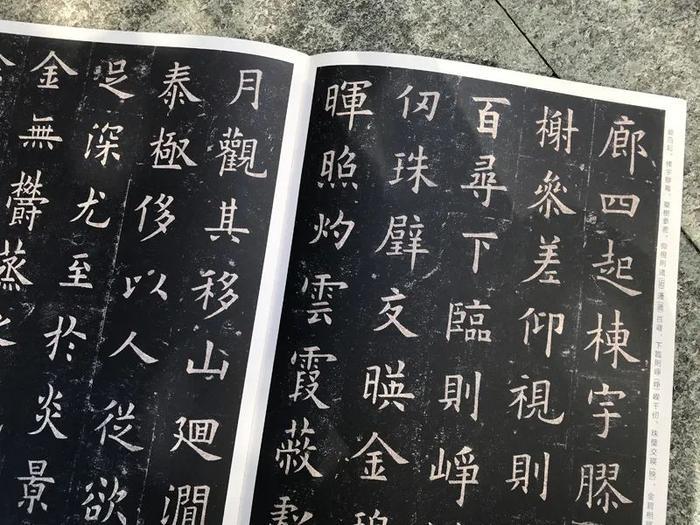 廊四起棟宇膠
榭參差仰視則
百尋下臨則崢
仞珠璧交暎金
暉照灼雲霞蔽
月觀其移山迴澗
泰極侈以人從欲
足深尤至於炎景
金無鬱蒸